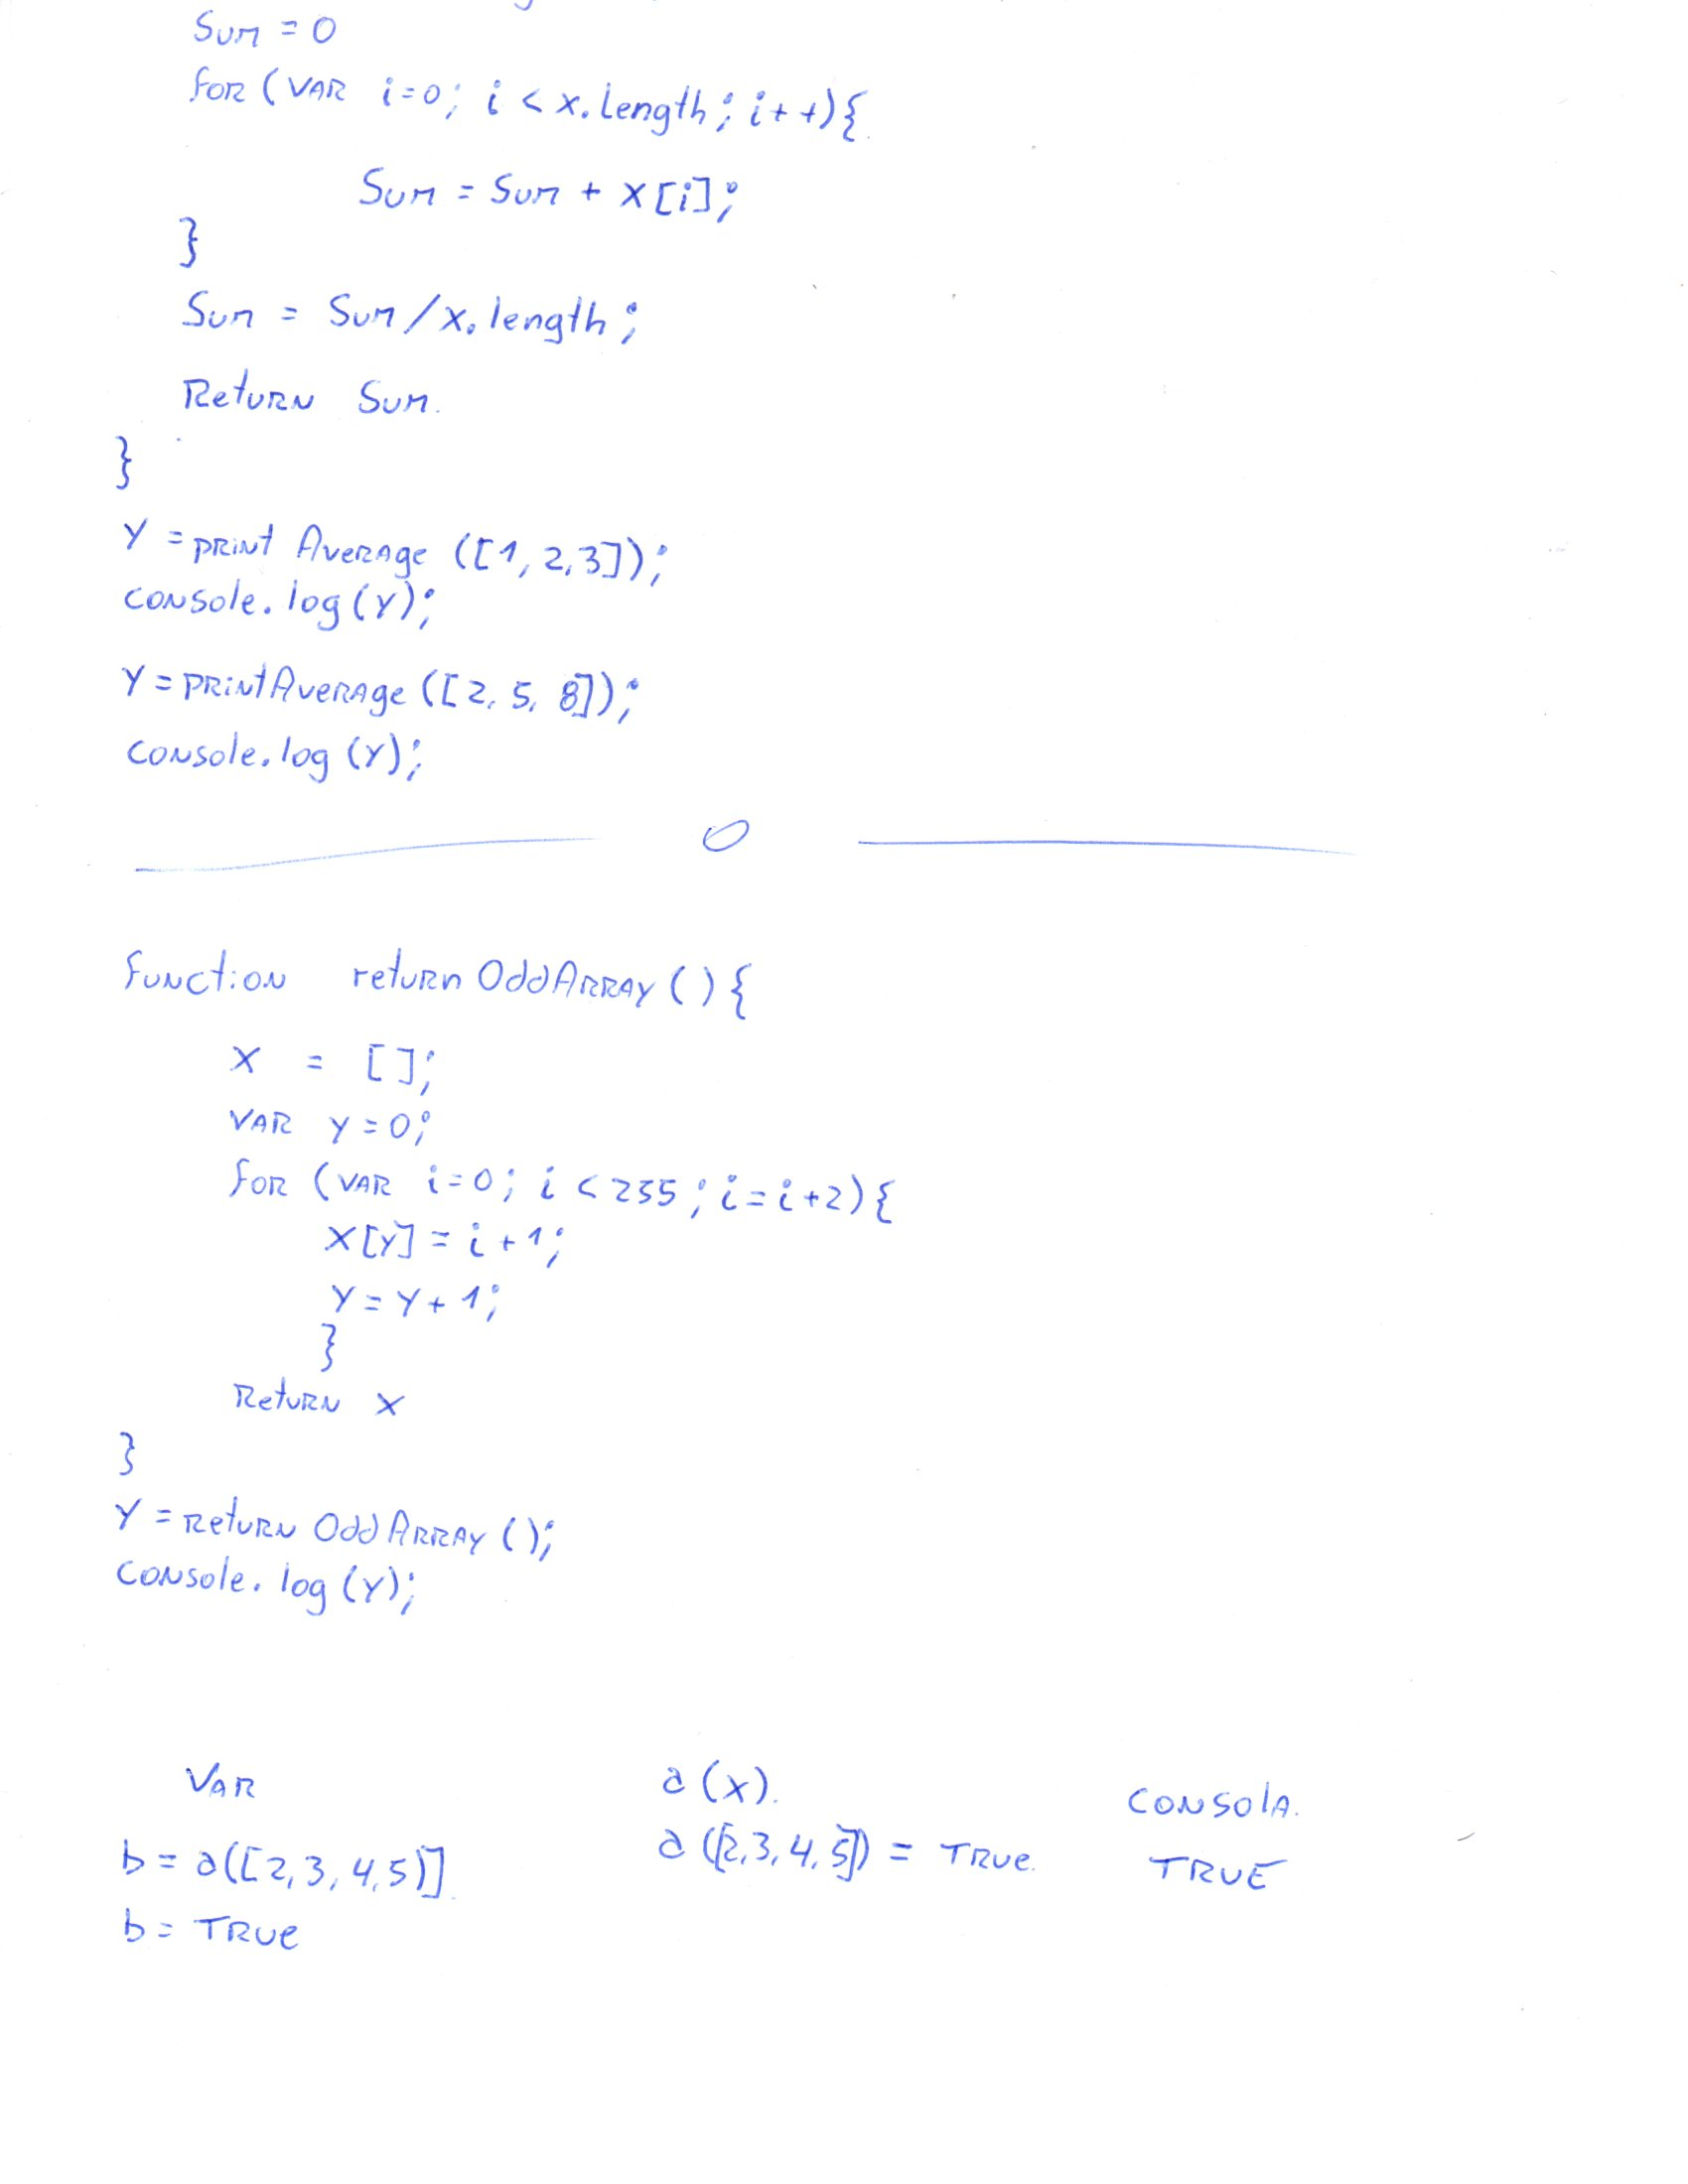 Sum = 0
for (VAR i=0; i < x.length; i++){
Sum = Sum + x[i];
}
Sum = Sum/x.length;
Return Sum.
}
Y = print Average ([1, 2,3]);
console.log(Y);
Y = printAverage ([2, 5, 8]);
console.log (Y);
0
function returnOddArray () {
X = [];
VAR Y=0;
for (VAR i=0; i < 255; i=i+2){
X[Y] = i+1;
Y=Y+1;
}
Return x
}
Y = return OddArray ();
console.log (Y);
VAR a(x). CONSOLA.
b = a([2,3,4,5)] a ([2,3,4,5]) = TRUE. TRUE
b = TRUE